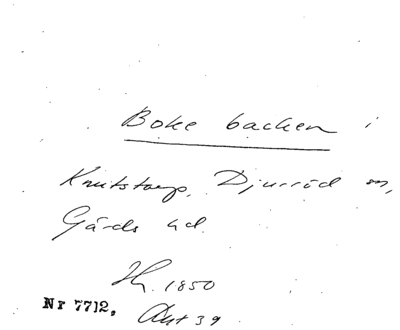 Boke backen i
Knutstorp, Djurröd sn,
Gärds hd.
1850
Nr 7712,
39